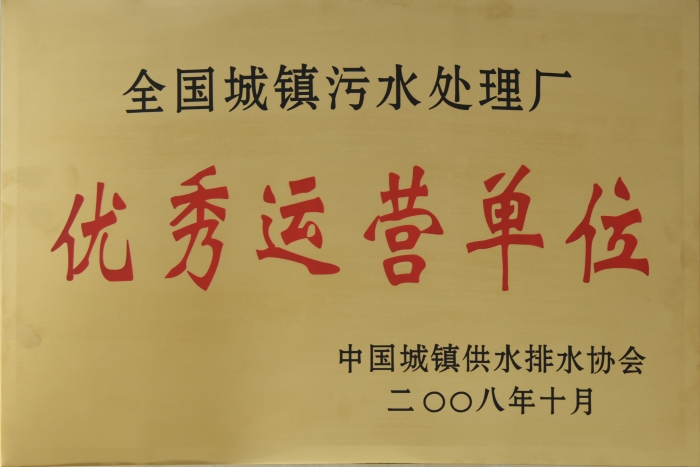 全国城镇污水处理厂
优秀运营单位
中国城镇供水排水协会
二〇〇八年十月